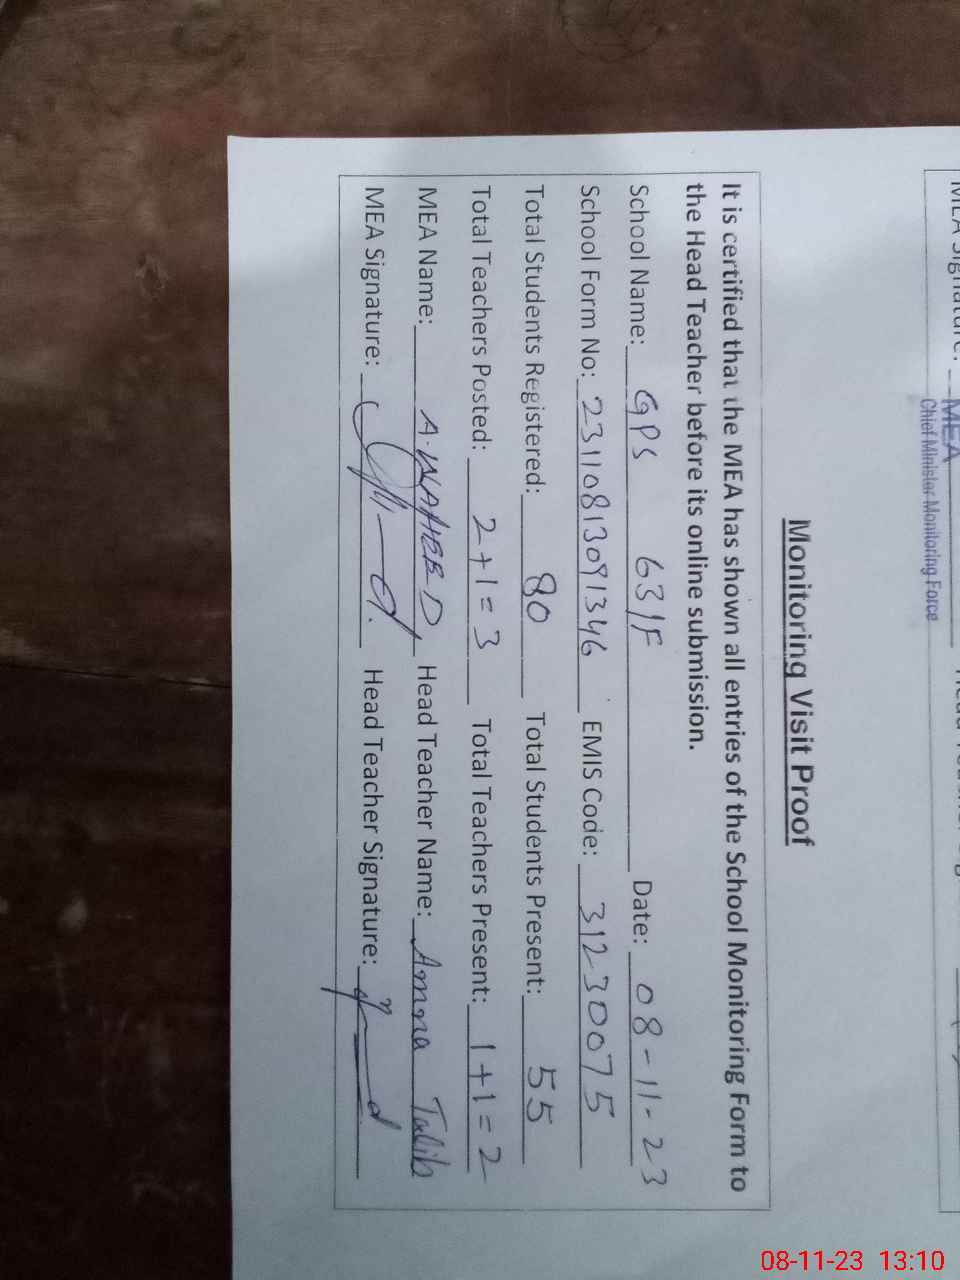 MEA Signature:
MEA
Chief Minister Monitoring Force
Monitoring Visit Proof
It is certified that the MEA has shown all entries of the School Monitoring Form to
the Head Teacher before its online submission.
School Name: GPS 631F Date: 08-11-23
School Form No: 23110813091346 EMIS Code: 31230075
Total Students Registered: 80 Total Students Present: 55
Total Teachers Posted: 2+1=3 Total Teachers Present: 1+1=2
MEA Name: A.WAHEED Head Teacher Name: Amna Talib
MEA Signature: Head Teacher Signature:
08-11-23 13:10